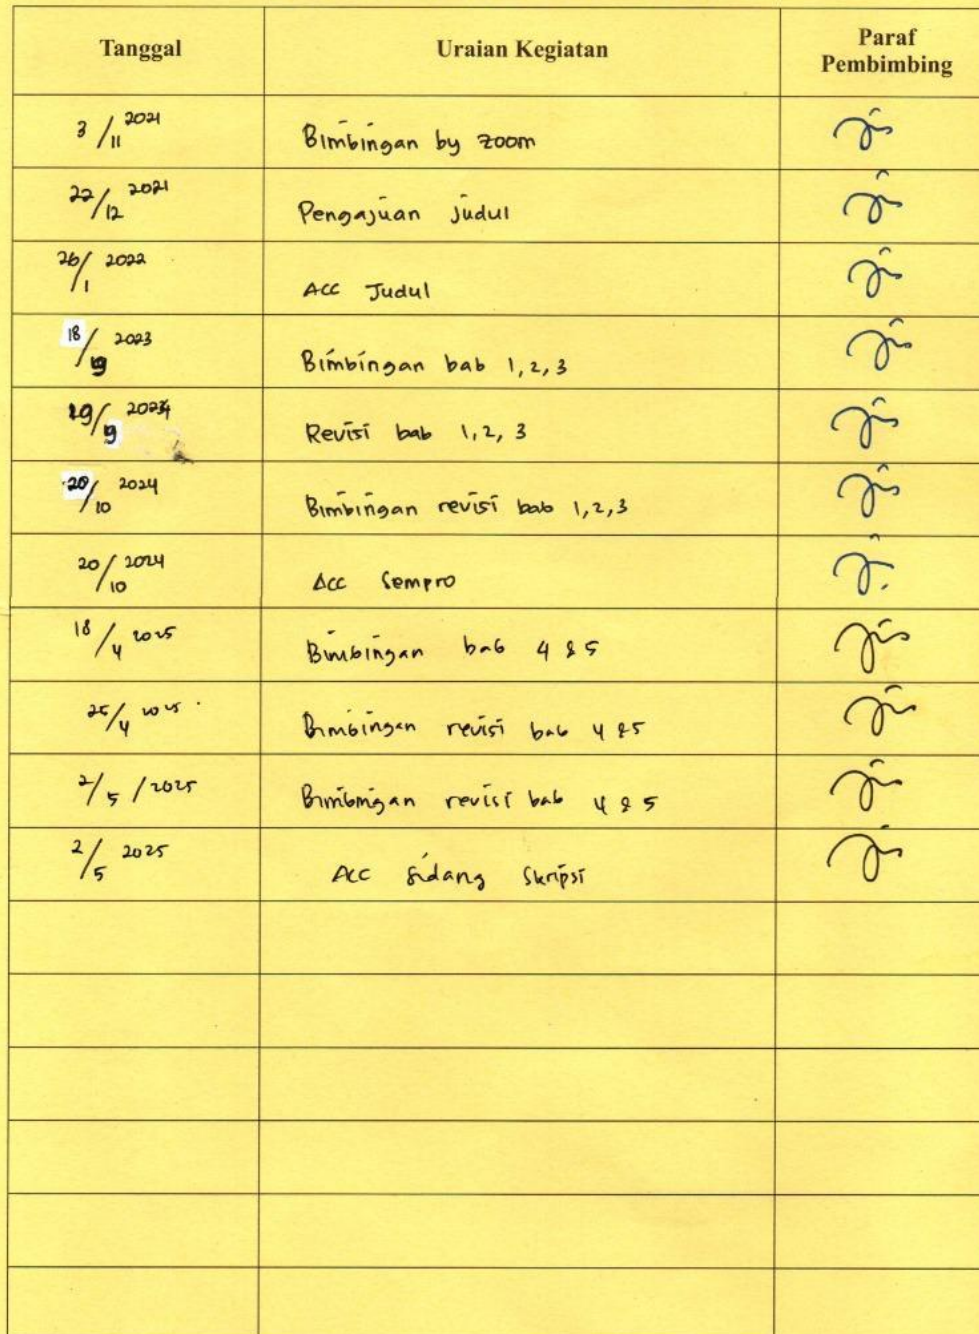 Tanggal Uraian Kegiatan Paraf Pembimbing
3/11 2021 Bimbingan by zoom
22/12 2021 Pengajuan judul
26/1 2022 ACC Judul
18/9 2023 Bimbingan bab 1,2,3
19/9 Revisi bab 1,2,3
20/10 2024 Bimbingan revisi bab 1,2,3
20/10 2024 Acc Sempro
18/4 2025 Bimbingan bab 4 & 5
25/4 2025 Bimbingan revisi bab 4 & 5
2/5/2025 Bimbingan revisi bab 4 & 5
2/5 2025 ACC Sidang Skripsi